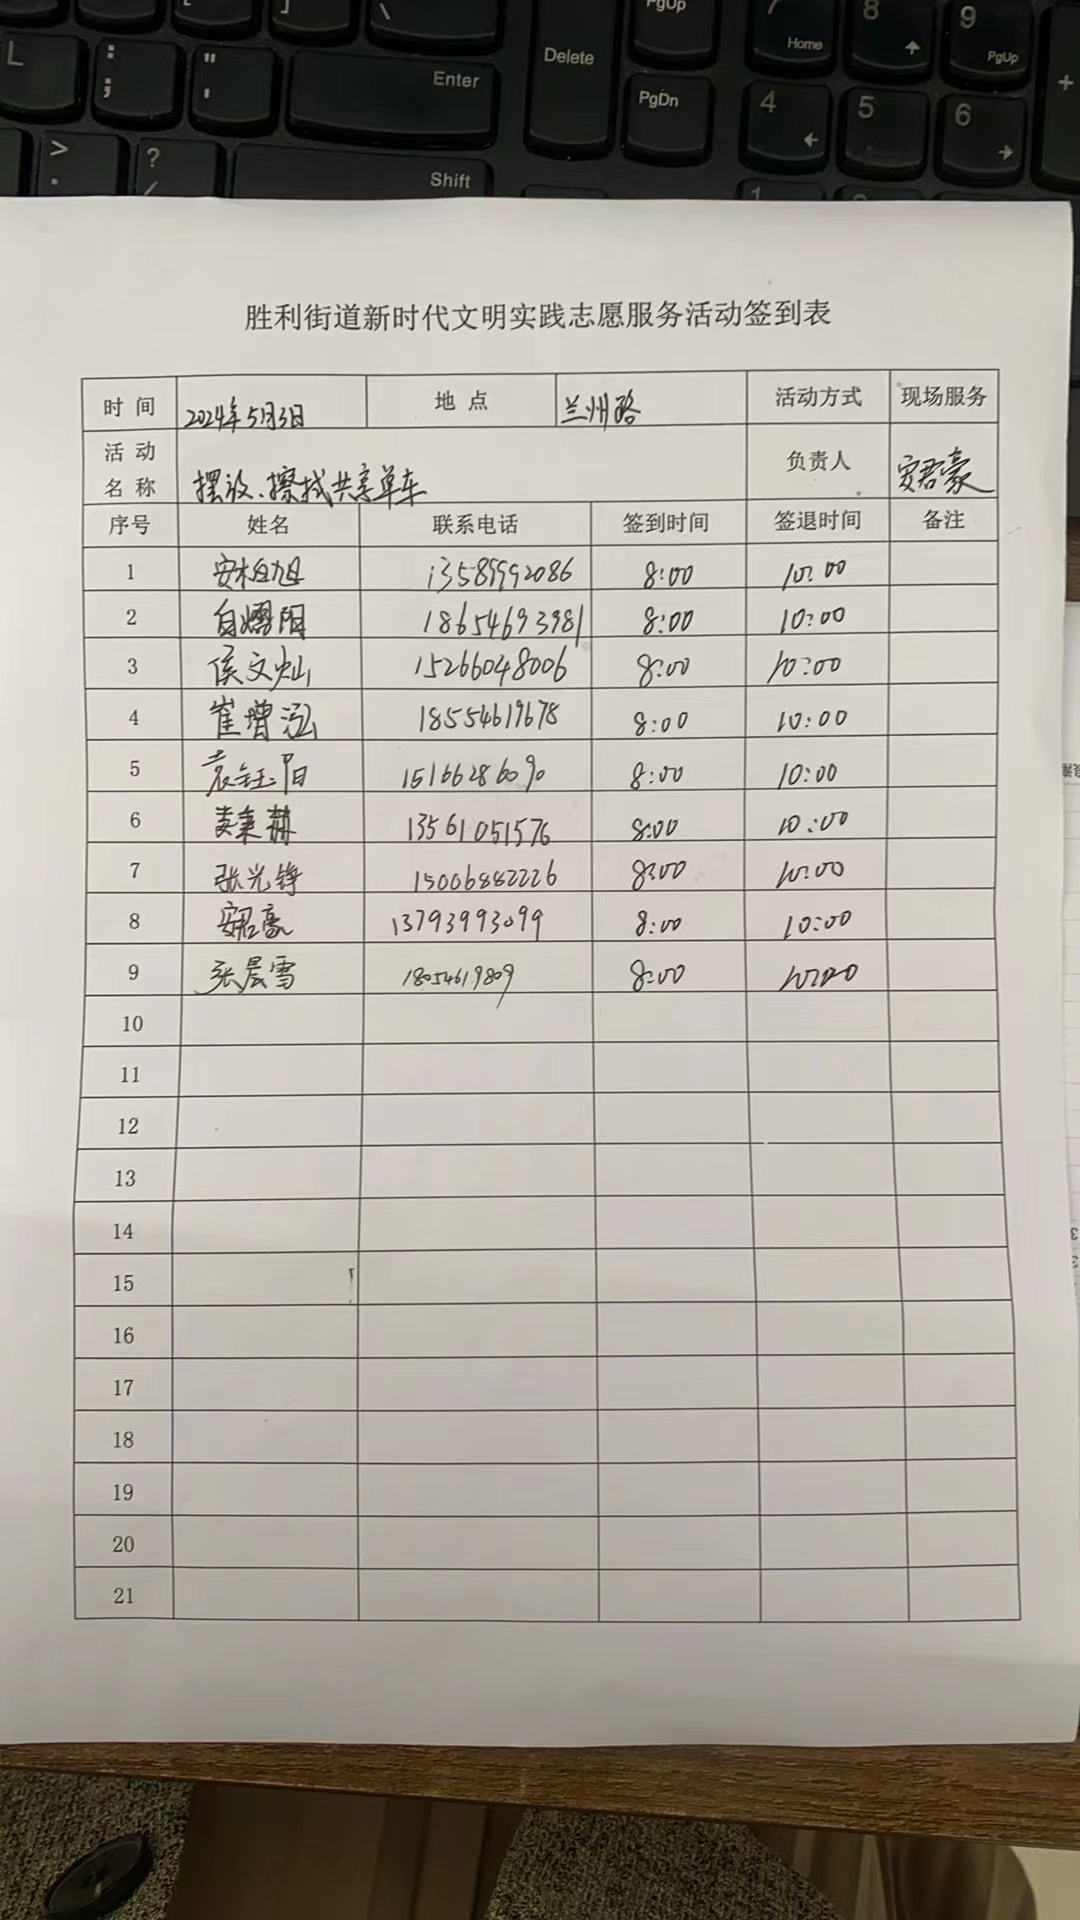 PgUp
7
8
9
Delete
Home
PgUp
+
L
:
;
"
'
Enter
PgDn
4
5
6
>
.
?
/
Shift
1
胜利街道新时代文明实践志愿服务活动签到表
时 间 2024年5月3日 地 点 兰州路 活动方式 现场服务
活 动
名 称 摆放、擦拭共享单车 负责人 安君豪
序号 姓名 联系电话 签到时间 签退时间 备注
1 安柏旭 13589992086 8:00 10:00
2 白 阳 18654693981 8:00 10:00
3 侯文灿 15266048006 8:00 10:00
4 崔增泓 18554619678 8:00 10:00
5 袁钰阳 15166286090 8:00 10:00
6 秉赫 13561051576 8:00 10:00
7 张光铮 15006882226 8:00 10:00
8 安君豪 13793993099 8:00 10:00
9 张晨雪 18054619809 8:00 10:00
10
11
12
13
14
15
16
17
18
19
20
21